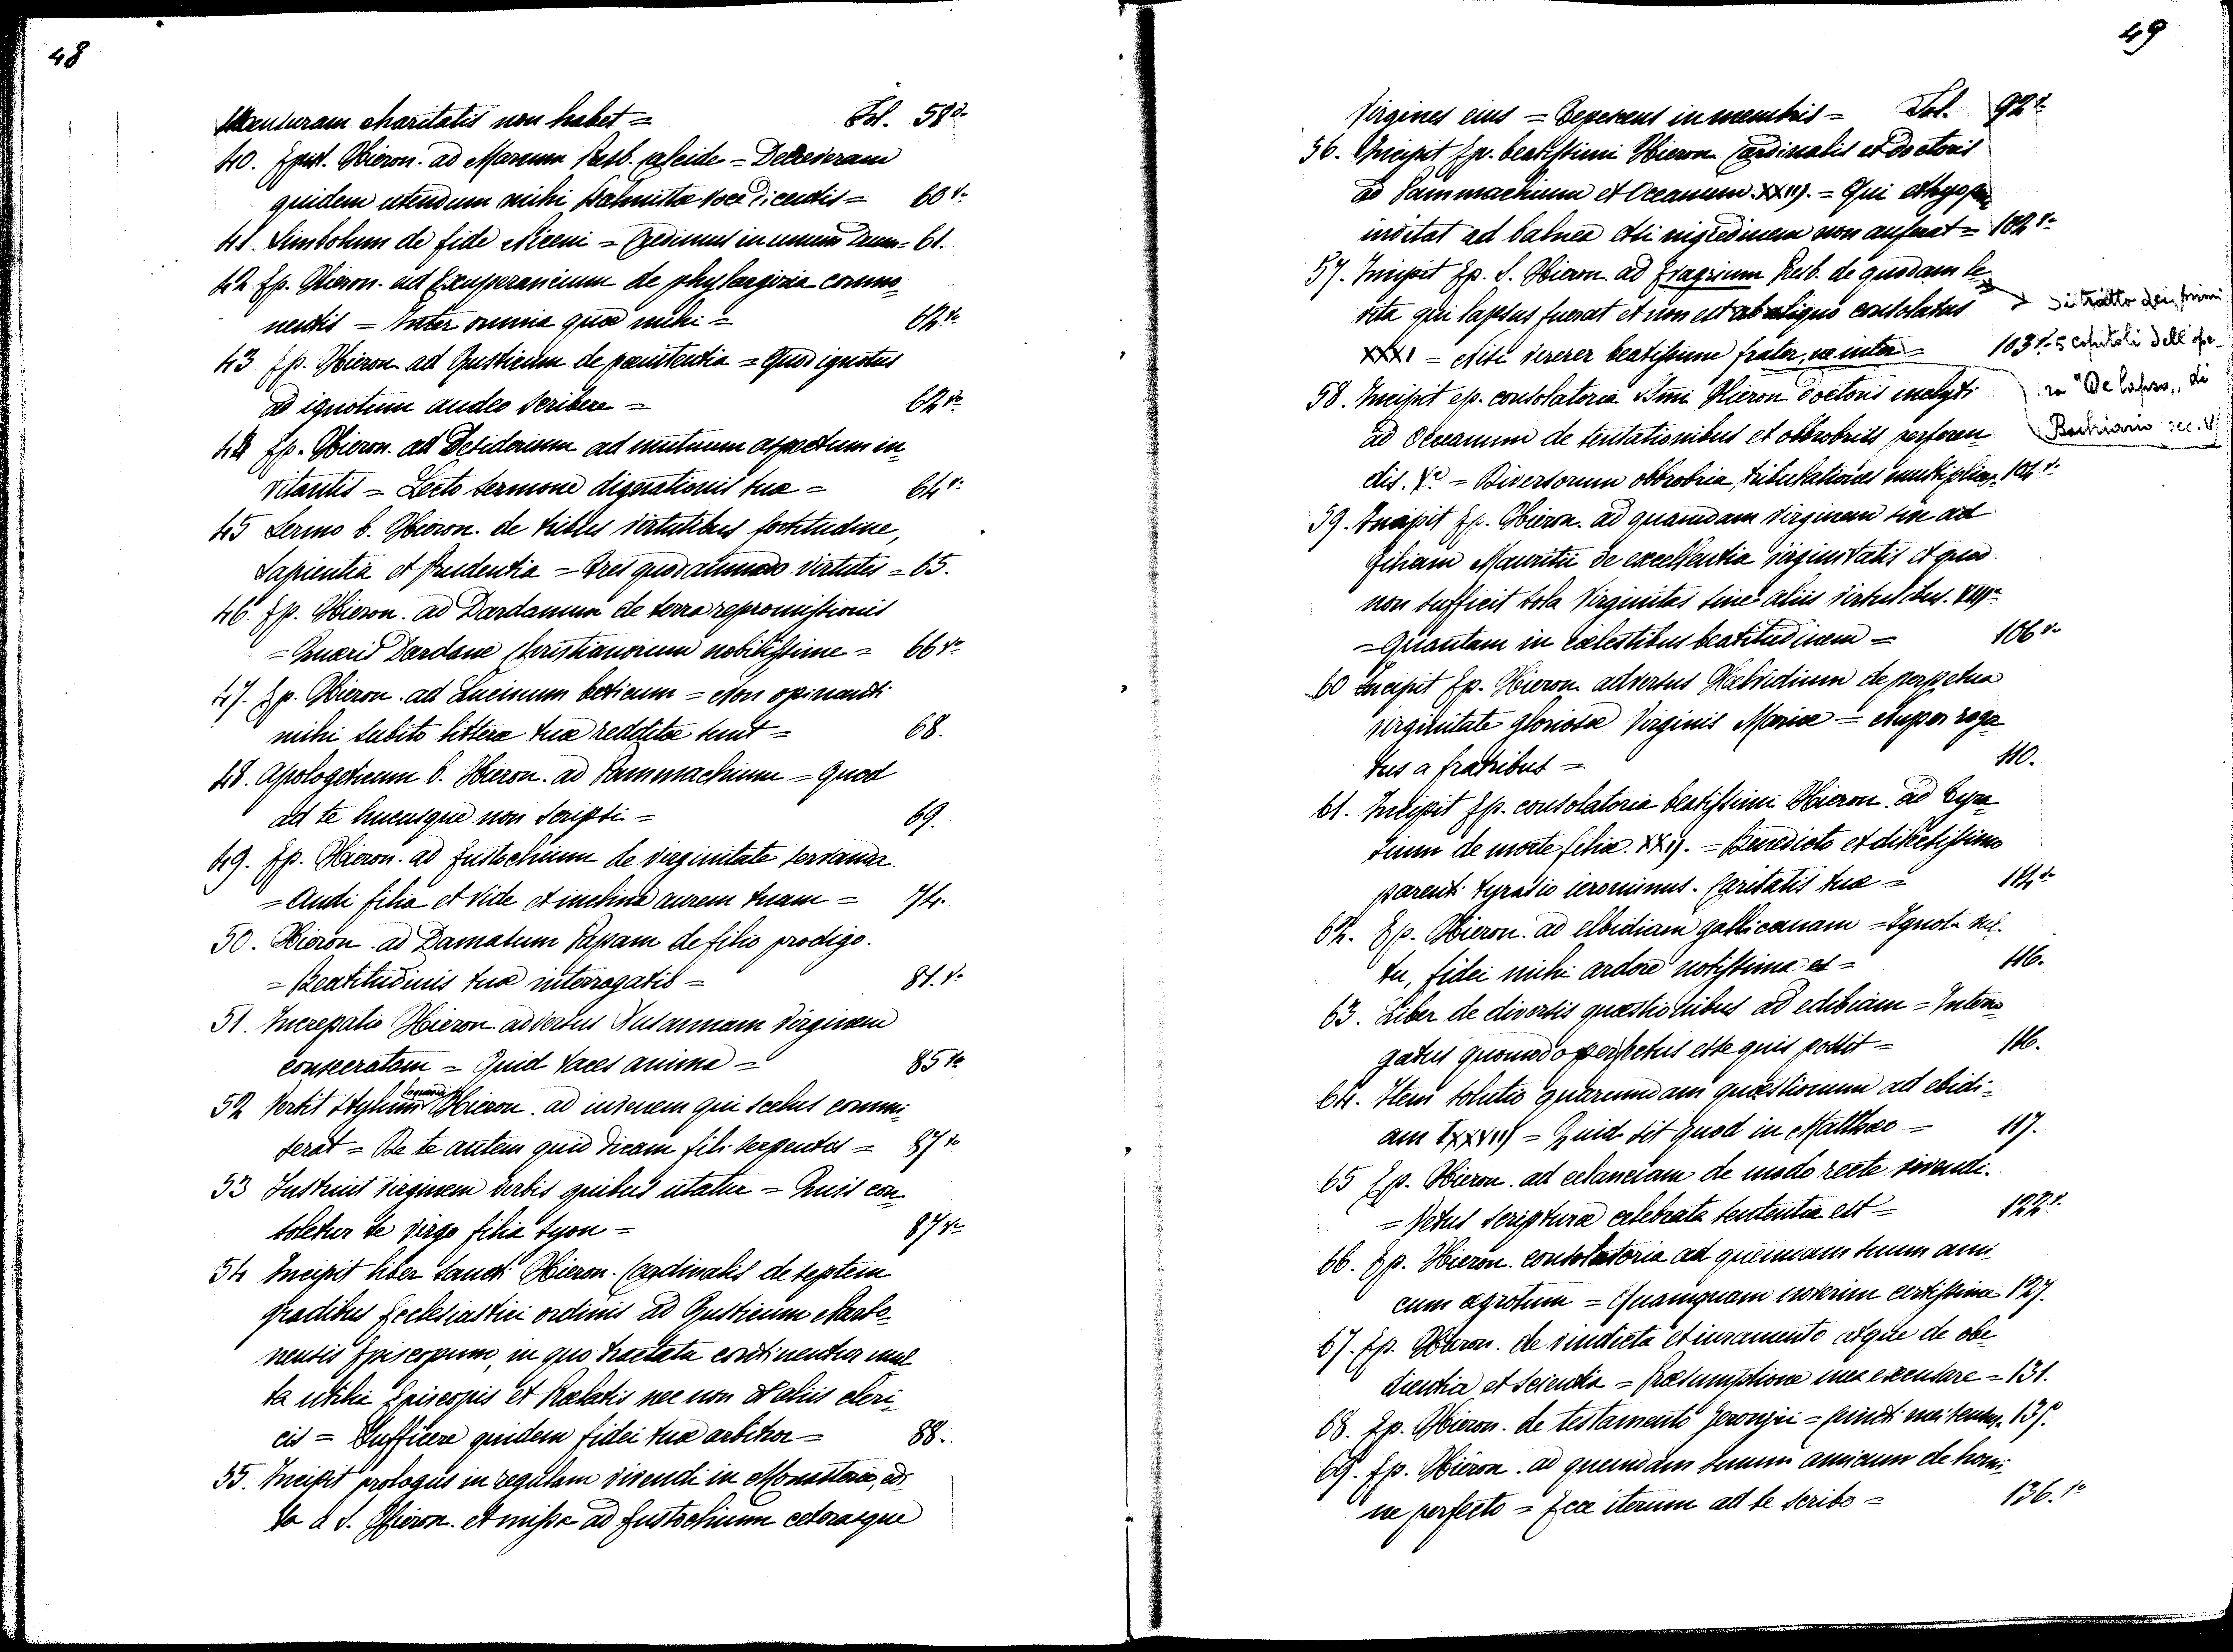 48
Mensuram charitatis non habet = Fol. 58 vo
40. Epist. Hieron. ad Marcum Presb. Celeide = Decreveram
quidem utendum mihi Psalmistæ voce dicentis = 60 vo
41. Simbolum de fide Niceni = Credimus in unum Deum = 61.
42 Ep. Hieron. ad Exuperancium de phylargiria commo=
nentis = Inter omnia quæ mihi = 62 vo
43 Ep. Hieron. ad Rusticum de pœnitentia = Quod ignotus
ad ignotum audeo scribere = 62 vo
44 Ep. Hieron. ad Desiderium ad mutuum aspectum in=
vitantis = Lecto sermone dignationis tuæ = 64 vo
45 Sermo b. Hieron. de tribus virtutibus fortitudine,
Sapientia et Prudentia = Tres quodammodo virtutes = 65.
46. Ep. Hieron. ad Dardanum de terra repromissionis
= Quæris Dardane Christianorum nobilissime = 66 vo
47. Ep. Hieron. ad Lucinum beticum = Non opinanti
mihi subito litteræ tuæ redditæ sunt = 68.
48. Apologeticum b. Hieron. ad Pammachium = Quod
ad te hucusque non scripsi = 69.
49. Ep. Hieron. ad Eustochium de virginitate servanda.
= Audi filia et vide et inclina aurem tuam = 74.
50. Hieron. ad Damasum Papam de filio prodigo.
= Beatitudinis tuæ interrogatis = 81. vo
51. Increpatio Hieron. adversus Susannam Virginem
consecratam = Quid taces anima = 85 vo
52 Vertit stylum loquendi Hieron. ad iuvenem qui scelus commi=
serat = De te autem quid dicam fili serpentis = 87 vo
53 Instruit virginem verbis quibus utatur = Quis con=
soletur te virgo filia syon = 87 vo
54 Incipit liber sancti Hieron. Cardinalis de septem
gradibus Ecclesiastici ordinis ad Rusticum Narbo=
nensis Episcopum, in quo tractatu continentur mul=
ta utilia Episcopis et Prælatis nec non et aliis cleri=
cis = Sufficere quidem fidei tuæ arbitror = 88.
55. Incipit prologus in regulam vivendi in Monasterio, edi
ta a S. Hieron. et missa ad Eustochium ceterasque
49
Virgines eius = Tepescens in membris = Fol. 92 vo
56. Incipit Ep. beatissimi Hieron. Cardinalis et doctoris
ad Pammachium et Oceanum. XXII). = Qui ethyopem
invitat ad balnea etsi nigredinem non auferat = 102 vo
57. Incipit Ep. S. Hieron. ad Evagrium Presb. de quodam le=
vita qui lapsus fuerat et non est ab aliquo consolatus
XXXI = Nisi vererer beatissime frater, ne inter = 103 vo
Si tratta dei primi
5 capitoli dell'ope-
ra "De lapso,, di
Bachiario sec. V
58. Incipit ep. consolatoria Stmi Hieron. doctoris inclyti
ad Oceanum de tentationibus et obbrobriis perferen=
dis. Xo = Diversorum obbrobria, tribulationes multiplices = 104 vo
59. Incipit Ep. Hieron. ad quamdam virginem sive ad
filiam Mauritii de excellentia virginitatis et quod
non sufficit sola Virginitas sine aliis virtutibus.
= Quantam in cœlestibus beatitudinem = 106 vo
60 Incipit Ep. Hieron. adversus Helvidium de perpetua
virginitate gloriosæ Virginis Mariæ = Nuper roga=
tus a fratribus = 110.
61. Incipit Ep. consolatoria beatissimi Hieron. ad Tyra=
sium de morte filiæ. XXI). = Benedicto et dilectissimo
parenti tyrasio ieronimus. Caritatis tuæ = 114 vo
62. Ep. Hieron. ad elbidiam gallicanam = Ignota vul=
tu, fidei mihi ardore notissima es = 116.
63. Liber de diversis quæstionibus ad edibiam = Interro
gatus quomodo perfectus esse quis possit = 116.
64. Item solutio quarumdam quæstionum ad ebidi=
am = Quid sit quod in Matthæo = 117.
65 Ep. Hieron. ad celanciam de modo recte vivendi.
= Vetus scripturæ celebrata sententia est = 122 vo
66. Ep. Hieron. consolatoria ad quemdam suum ami=
cum ægrotum = Quamquam noverim certissime 127.
67. Ep. Hieron. de vindicta et iuramento atque de obe=
dientia et scientia = Præsumptione mea excusare = 131.
68. Ep. Hieron. de testamento = 135.
69. Ep. Hieron. ad quemdam suum amicum de homi=
ne perfecto = Ecce iterum ad te scribo = 136. vo